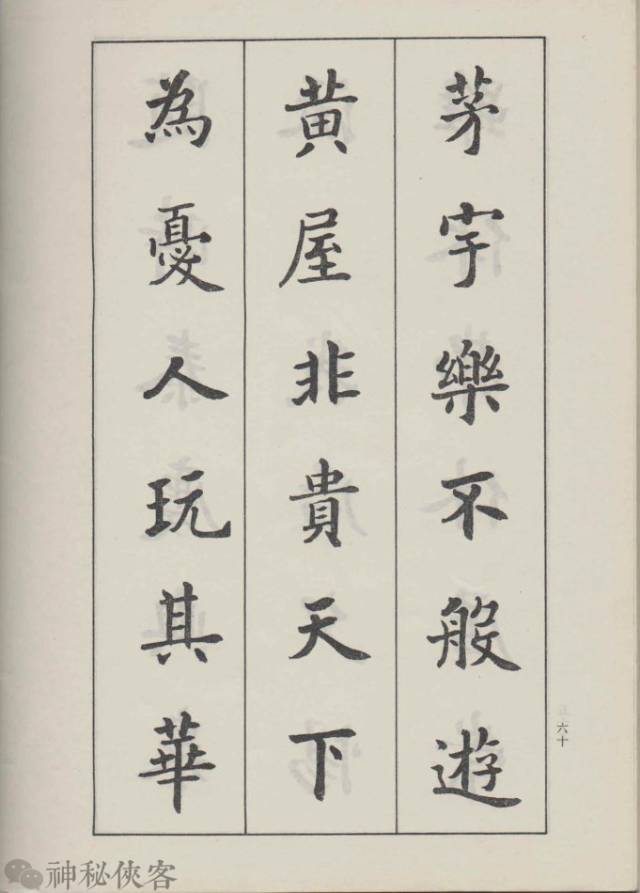 茅宇樂不般遊
黄屋非貴天下
為憂人玩其華
六十
神秘俠客